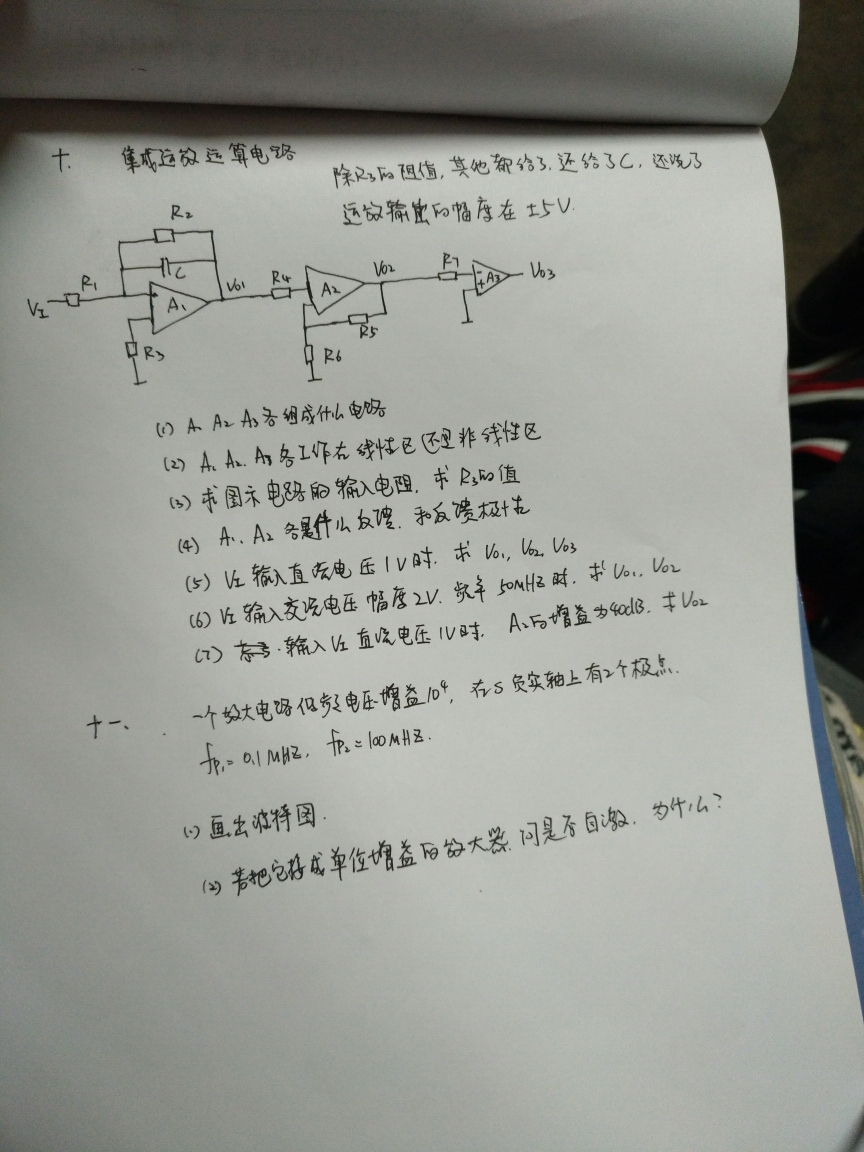 十. 集成运放运算电路
除R3的阻值,其他都给了,还给了C,还说了
运放输出的幅度在 ±5V.
R2
C
R1
VI
A1
R3
Vo1
R4
A2
Vo2
R5
R6
R7
- + A3
Vo3
(1) A1 A2 A3各组成什么电路
(2) A1 A2. A3各工作在线性区还是非线性区
(3) 求图示电路的输入电阻, 求 R3的值
(4) A1. A2 各是什么反馈. 和反馈极性
(5) VI 输入直流电压1V时. 求 Vo1, Vo2, Vo3
(6) VI 输入交流电压幅度2V. 频率 50MHZ时. 求 Vo1, Vo2
(7) 输入VI直流电压1V时. A2的增益为40dB. 求Vo2
十一、 一个放大电路低频电压增益10⁴, 在S负实轴上有2个极点.
fp1=0.1MHZ, fp2=100MHZ.
(1) 画出波特图.
(2) 若把它接成单位增益的放大器. 问是否自激. 为什么?